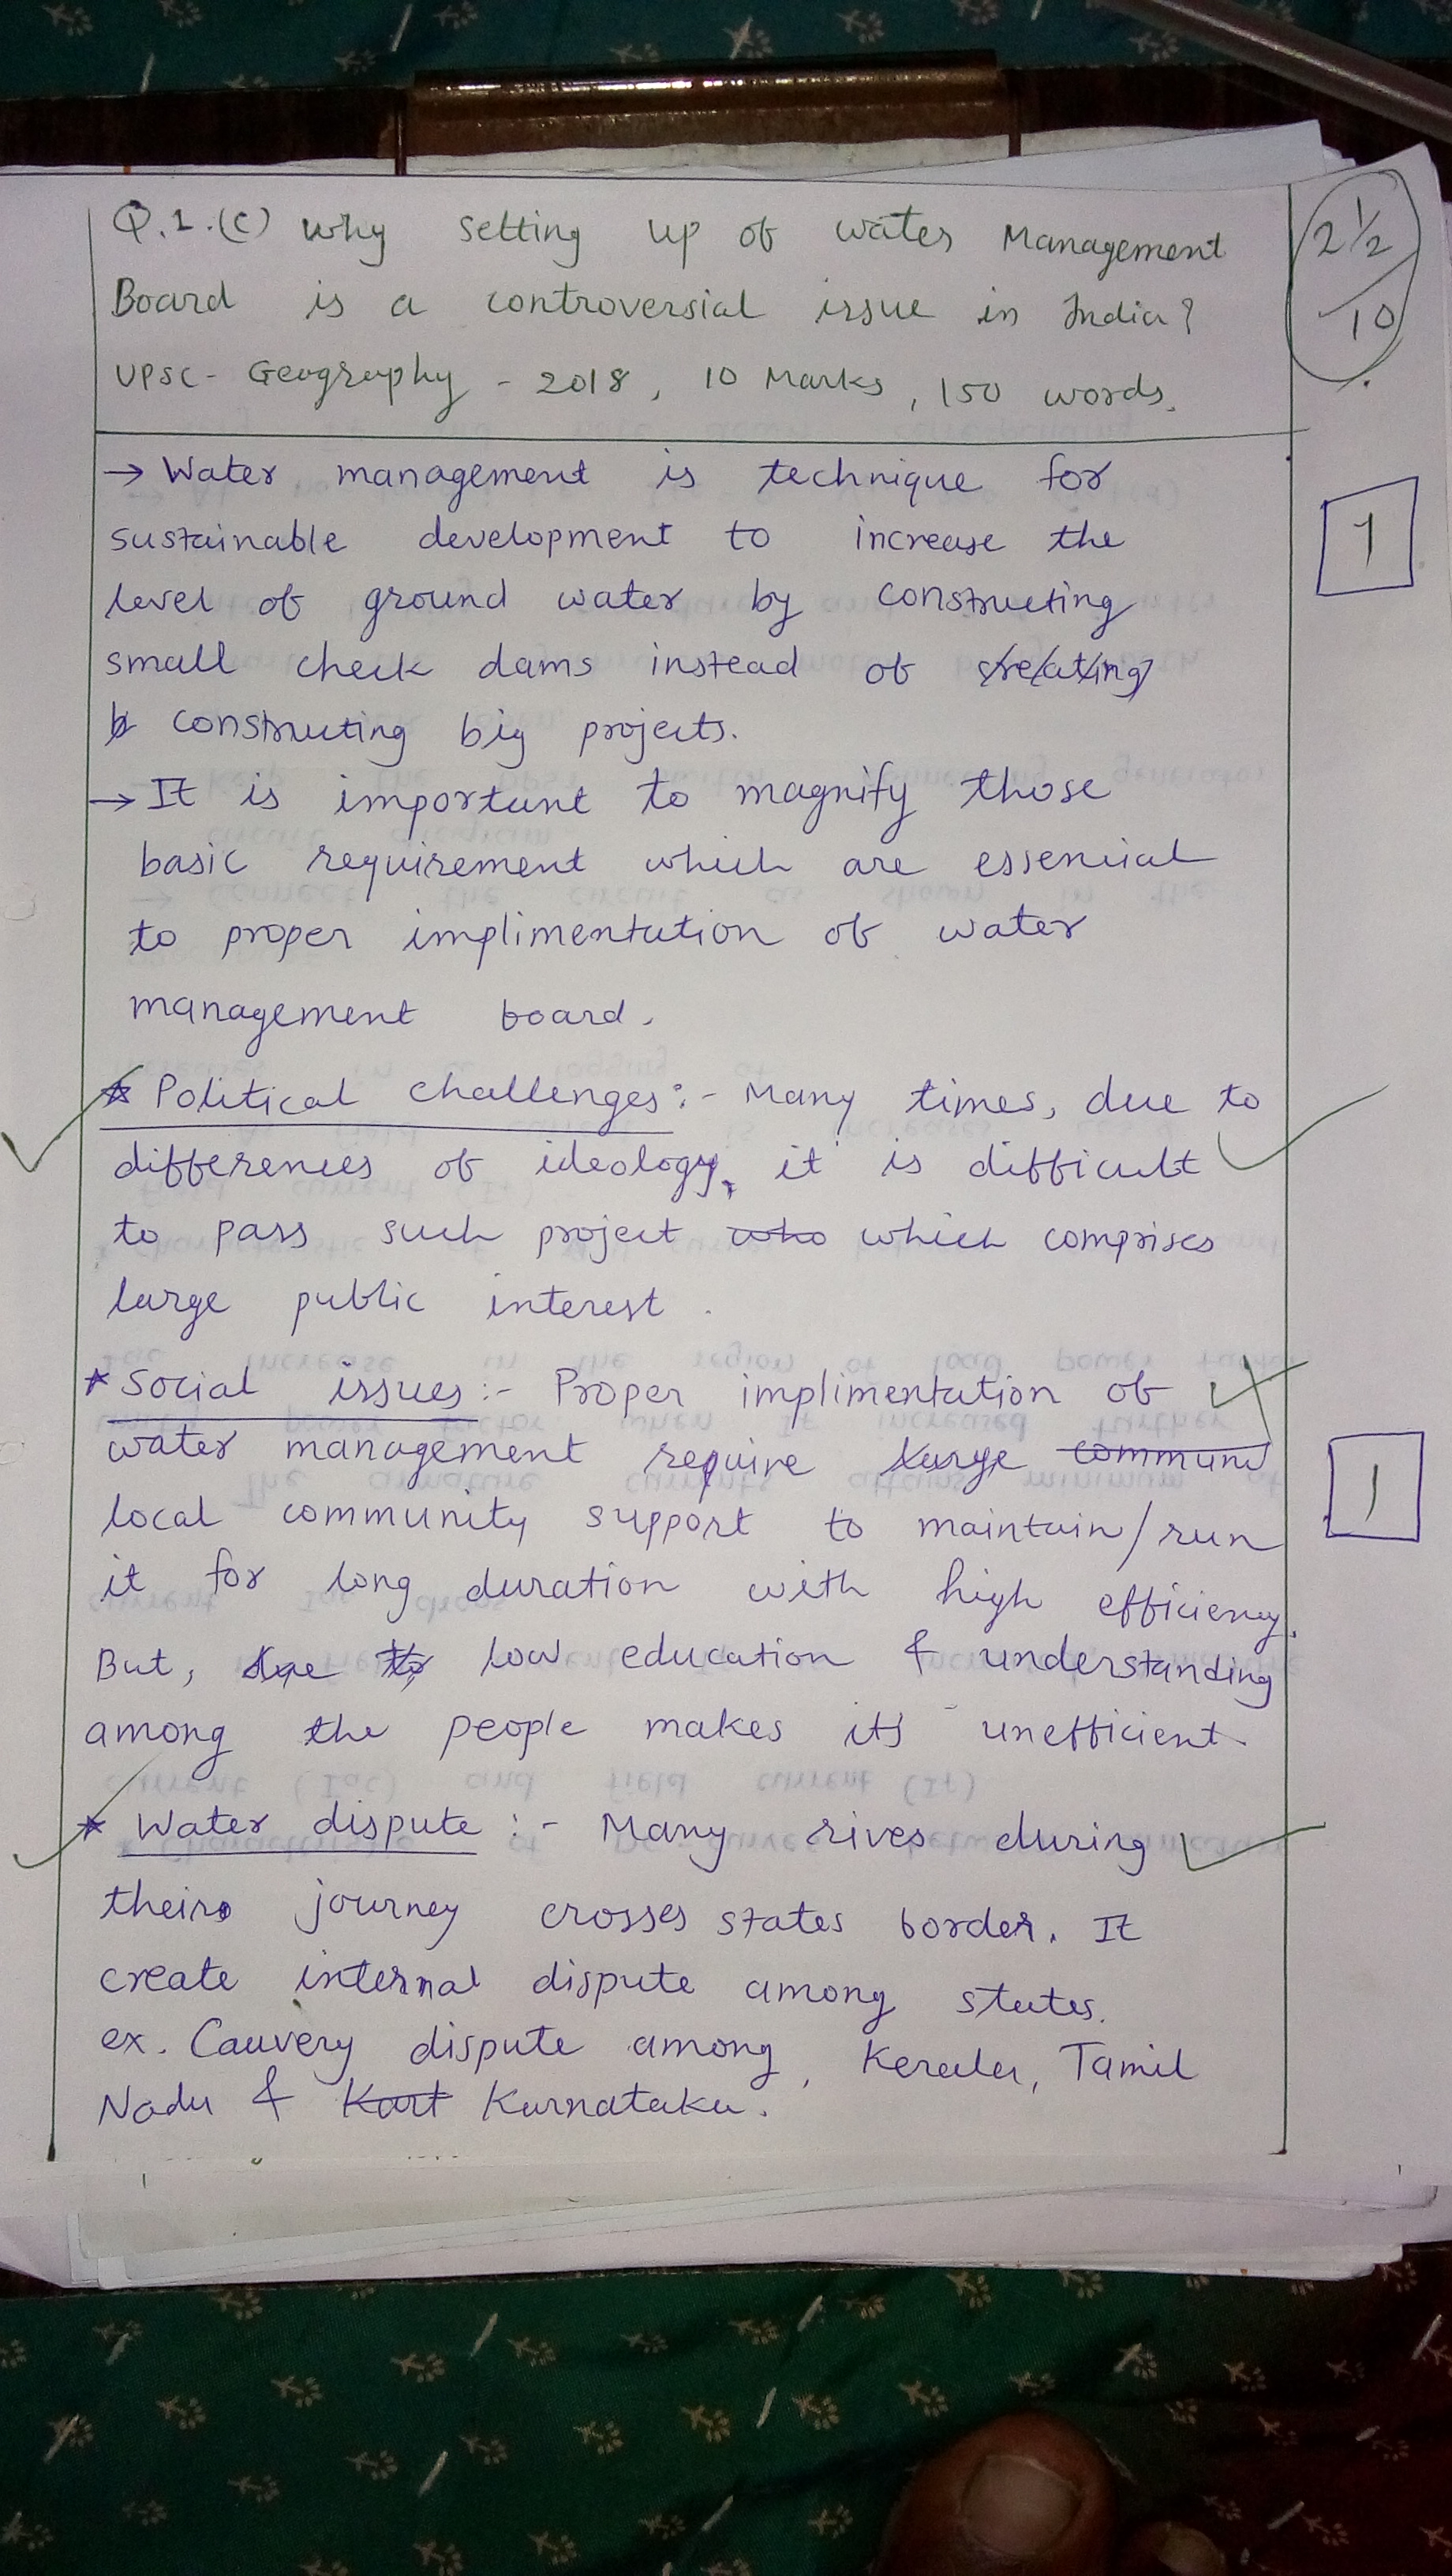 Q.1.(c) Why setting up of water Management
Board is a controversial issue in India?
UPSC - Geography - 2018, 10 Marks, 150 words.
2 1/2
/10
→ Water management is technique for
sustainable development to increase the
level of ground water by constructing
small check dams instead of creating
b constructing big projects.
1
→ It is important to magnify those
basic requirement which are essencial
to proper implimentation of water
management board.
* Political challenges :- Many times, due to
differences of ideology, it is difficult
to pass such project who which comprises
large public interest.
* Social issues :- Proper implimentation of
water management require large commun
local community support to maintain/run
it for long duration with high efficiency.
But, due to low education & understanding
among the people makes its unefficient.
1
* Water dispute :- Many rives during
their journey crosses states border. It
create internal dispute among states.
ex. Cauvery dispute among, Kerela, Tamil
Nadu & Kart Karnataka.